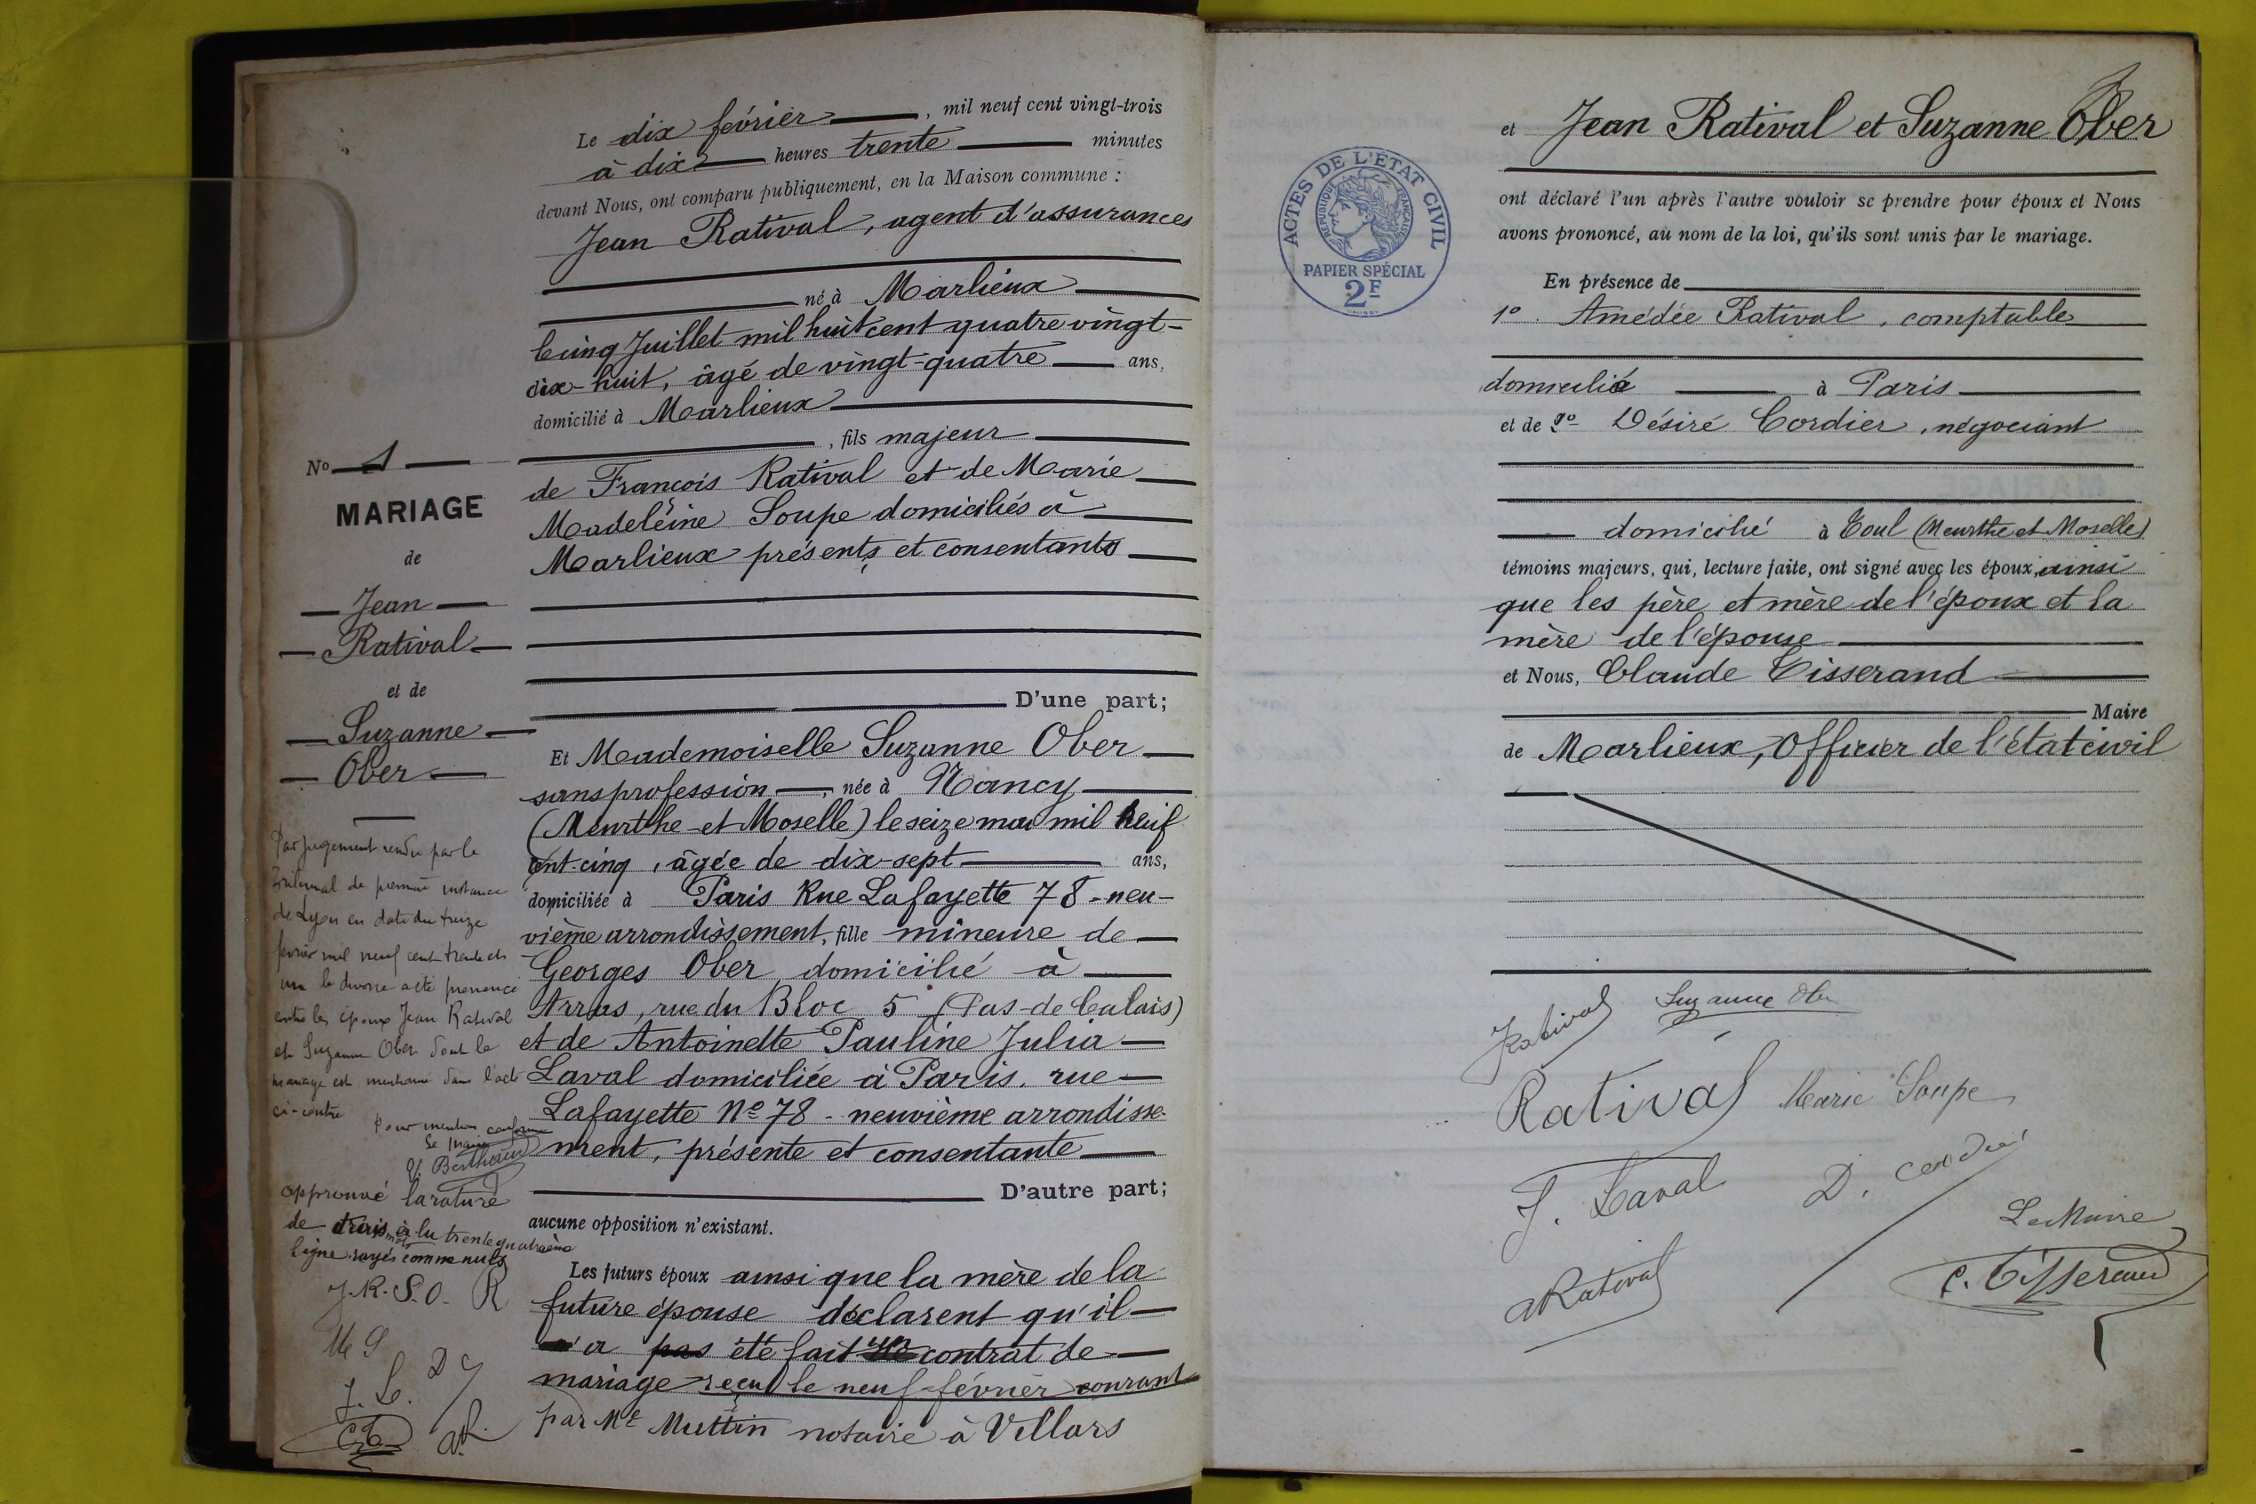 Le dix février, mil neuf cent vingt-trois
à dix heures trente minutes
devant Nous, ont comparu publiquement, en la Maison commune :
Jean Ratival, agent d'assurances
né à Marlieux
Cinq Juillet mil huit cent quatre vingt-
dix-huit, âgé de vingt-quatre ans,
domicilié à Marlieux
, fils majeur
de François Ratival et de Marie
Madeleine Soupe domiciliés à
Marlieux présents et consentants
D'une part;
Et Mademoiselle Suzanne Ober
sans profession, née à Nancy
(Meurthe-et-Moselle) le seize mai mil neuf
cent-cinq, âgée de dix-sept ans,
domiciliée à Paris Rue Lafayette 78 - neu-
vième arrondissement, fille mineure de
Georges Ober domicilié à
Arras, rue du Bloc 5 (Pas-de-Calais)
et de Antoinette Pauline Julia
Laval domiciliée à Paris, rue
Lafayette No 78 - neuvième arrondisse-
ment, présente et consentante
D'autre part;
aucune opposition n'existant.
Les futurs époux ainsi que la mère de la
future épouse déclarent qu'il
n'a pas été fait un contrat de
mariage reçu le neuf février courant
par Me Muttin notaire à Villars
No 1
MARIAGE
de
Jean
Ratival
et de
Suzanne
Ober
Par jugement rendu par le
Tribunal de première instance
de Lyon en date du treize
février mil neuf cent trente et
un le divorce a été prononcé
entre les époux Jean Ratival
et Suzanne Ober dont le
mariage est mentionné dans l'acte
ci-contre
Pour mention conforme
Le Maire
Berthoud
approuvé la rature
de trois mots à la trente quatrième
ligne rayés comme nuls
J.R. S.O. R
M S
J. L. D C
CT aR
et Jean Ratival et Suzanne Ober
ont déclaré l'un après l'autre vouloir se prendre pour époux et Nous
avons prononcé, au nom de la loi, qu'ils sont unis par le mariage.
ACTES DE L'ETAT CIVIL
REPUBLIQUE FRANÇAISE
PAPIER SPÉCIAL
2F
En présence de
1o. Amédée Ratival, comptable
domicilié à Paris
et de 2o Désiré Cordier, négociant
domicilié à Toul (Meurthe et Moselle)
témoins majeurs, qui, lecture faite, ont signé avec les époux, ainsi
que les père et mère de l'époux et la
mère de l'épouse
et Nous, Claude Tisserand
Maire
de Marlieux, Officier de l'état civil
JRatival Suzanne Ober
Ratival Marie Soupe
J. Laval D. Cordier
Le Maire
aRatival C. Tisserand